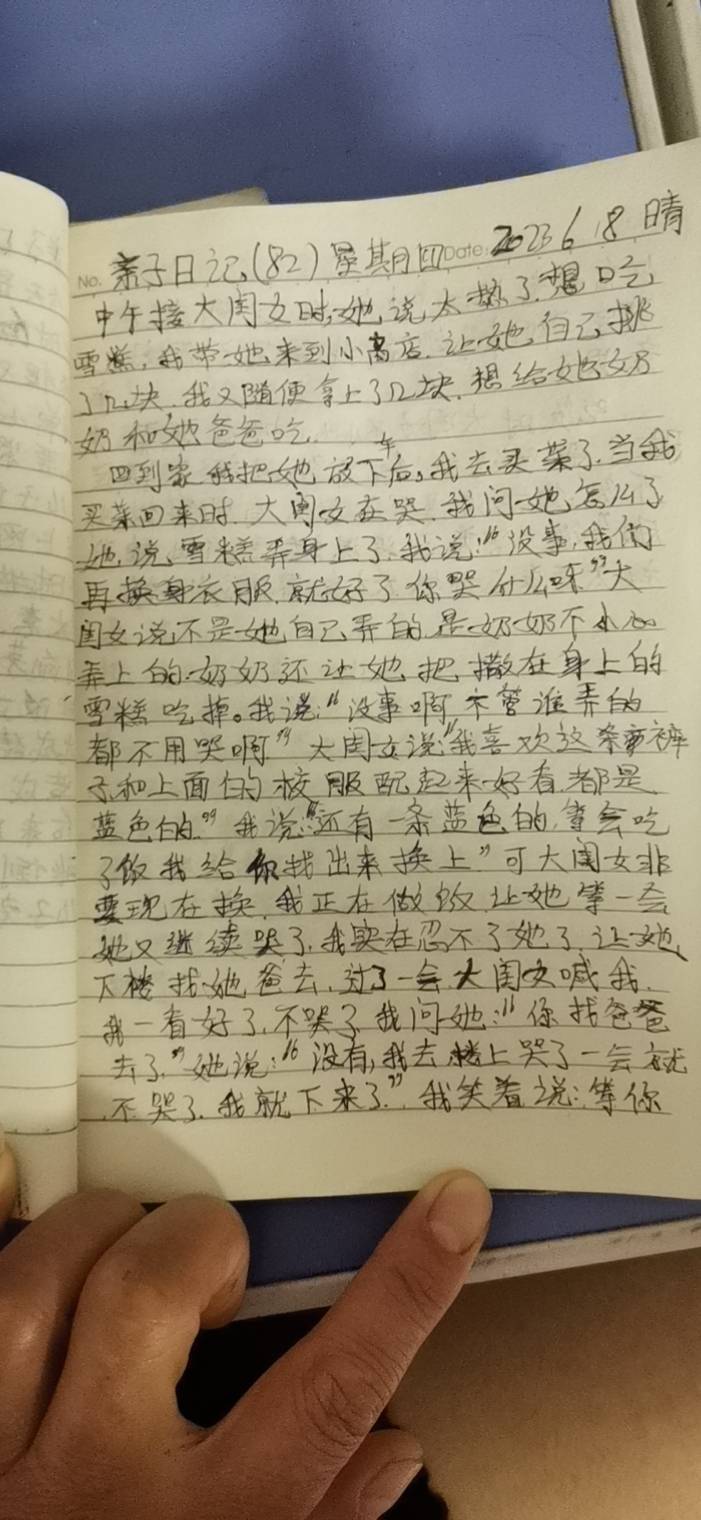 No. 亲子日记(82) 星期四 Date: 2023 6 18 晴
中午接大闺女时,她说太热了.想吃
雪糕,我带她来到小商店.让她自己挑
了几块.我又随便拿上了几块.想给她奶
奶和她爸爸吃.
回到家我把她放下车后,我去买菜了.当我
买菜回来时.大闺女在哭.我问她怎么了
她说雪糕弄身上了.我说:“没事,我们
再换身衣服.就好了你哭什么呀”大
闺女说不是她自己弄的.是奶奶不小心
弄上的.奶奶还让她把撒在身上的
雪糕吃掉。我说:“没事啊不管谁弄的
都不用哭啊.”大闺女说:“我喜欢这条裤
子和上面白的校服配起来好看.都是
蓝色的.”我说:“还有一条蓝色的,等会吃
了饭我给你找出来换上”可大闺女非
要现在换.我正在做饭.让她等一会
她又继续哭了.我实在忍不了她了.让她
下楼找她爸去.过了一会大闺女喊我.
我一看好了.不哭了我问她:“你找爸爸
去了.”她说:“没有,我去楼上哭了一会就
不哭了.我就下来了.”我笑着说:等你